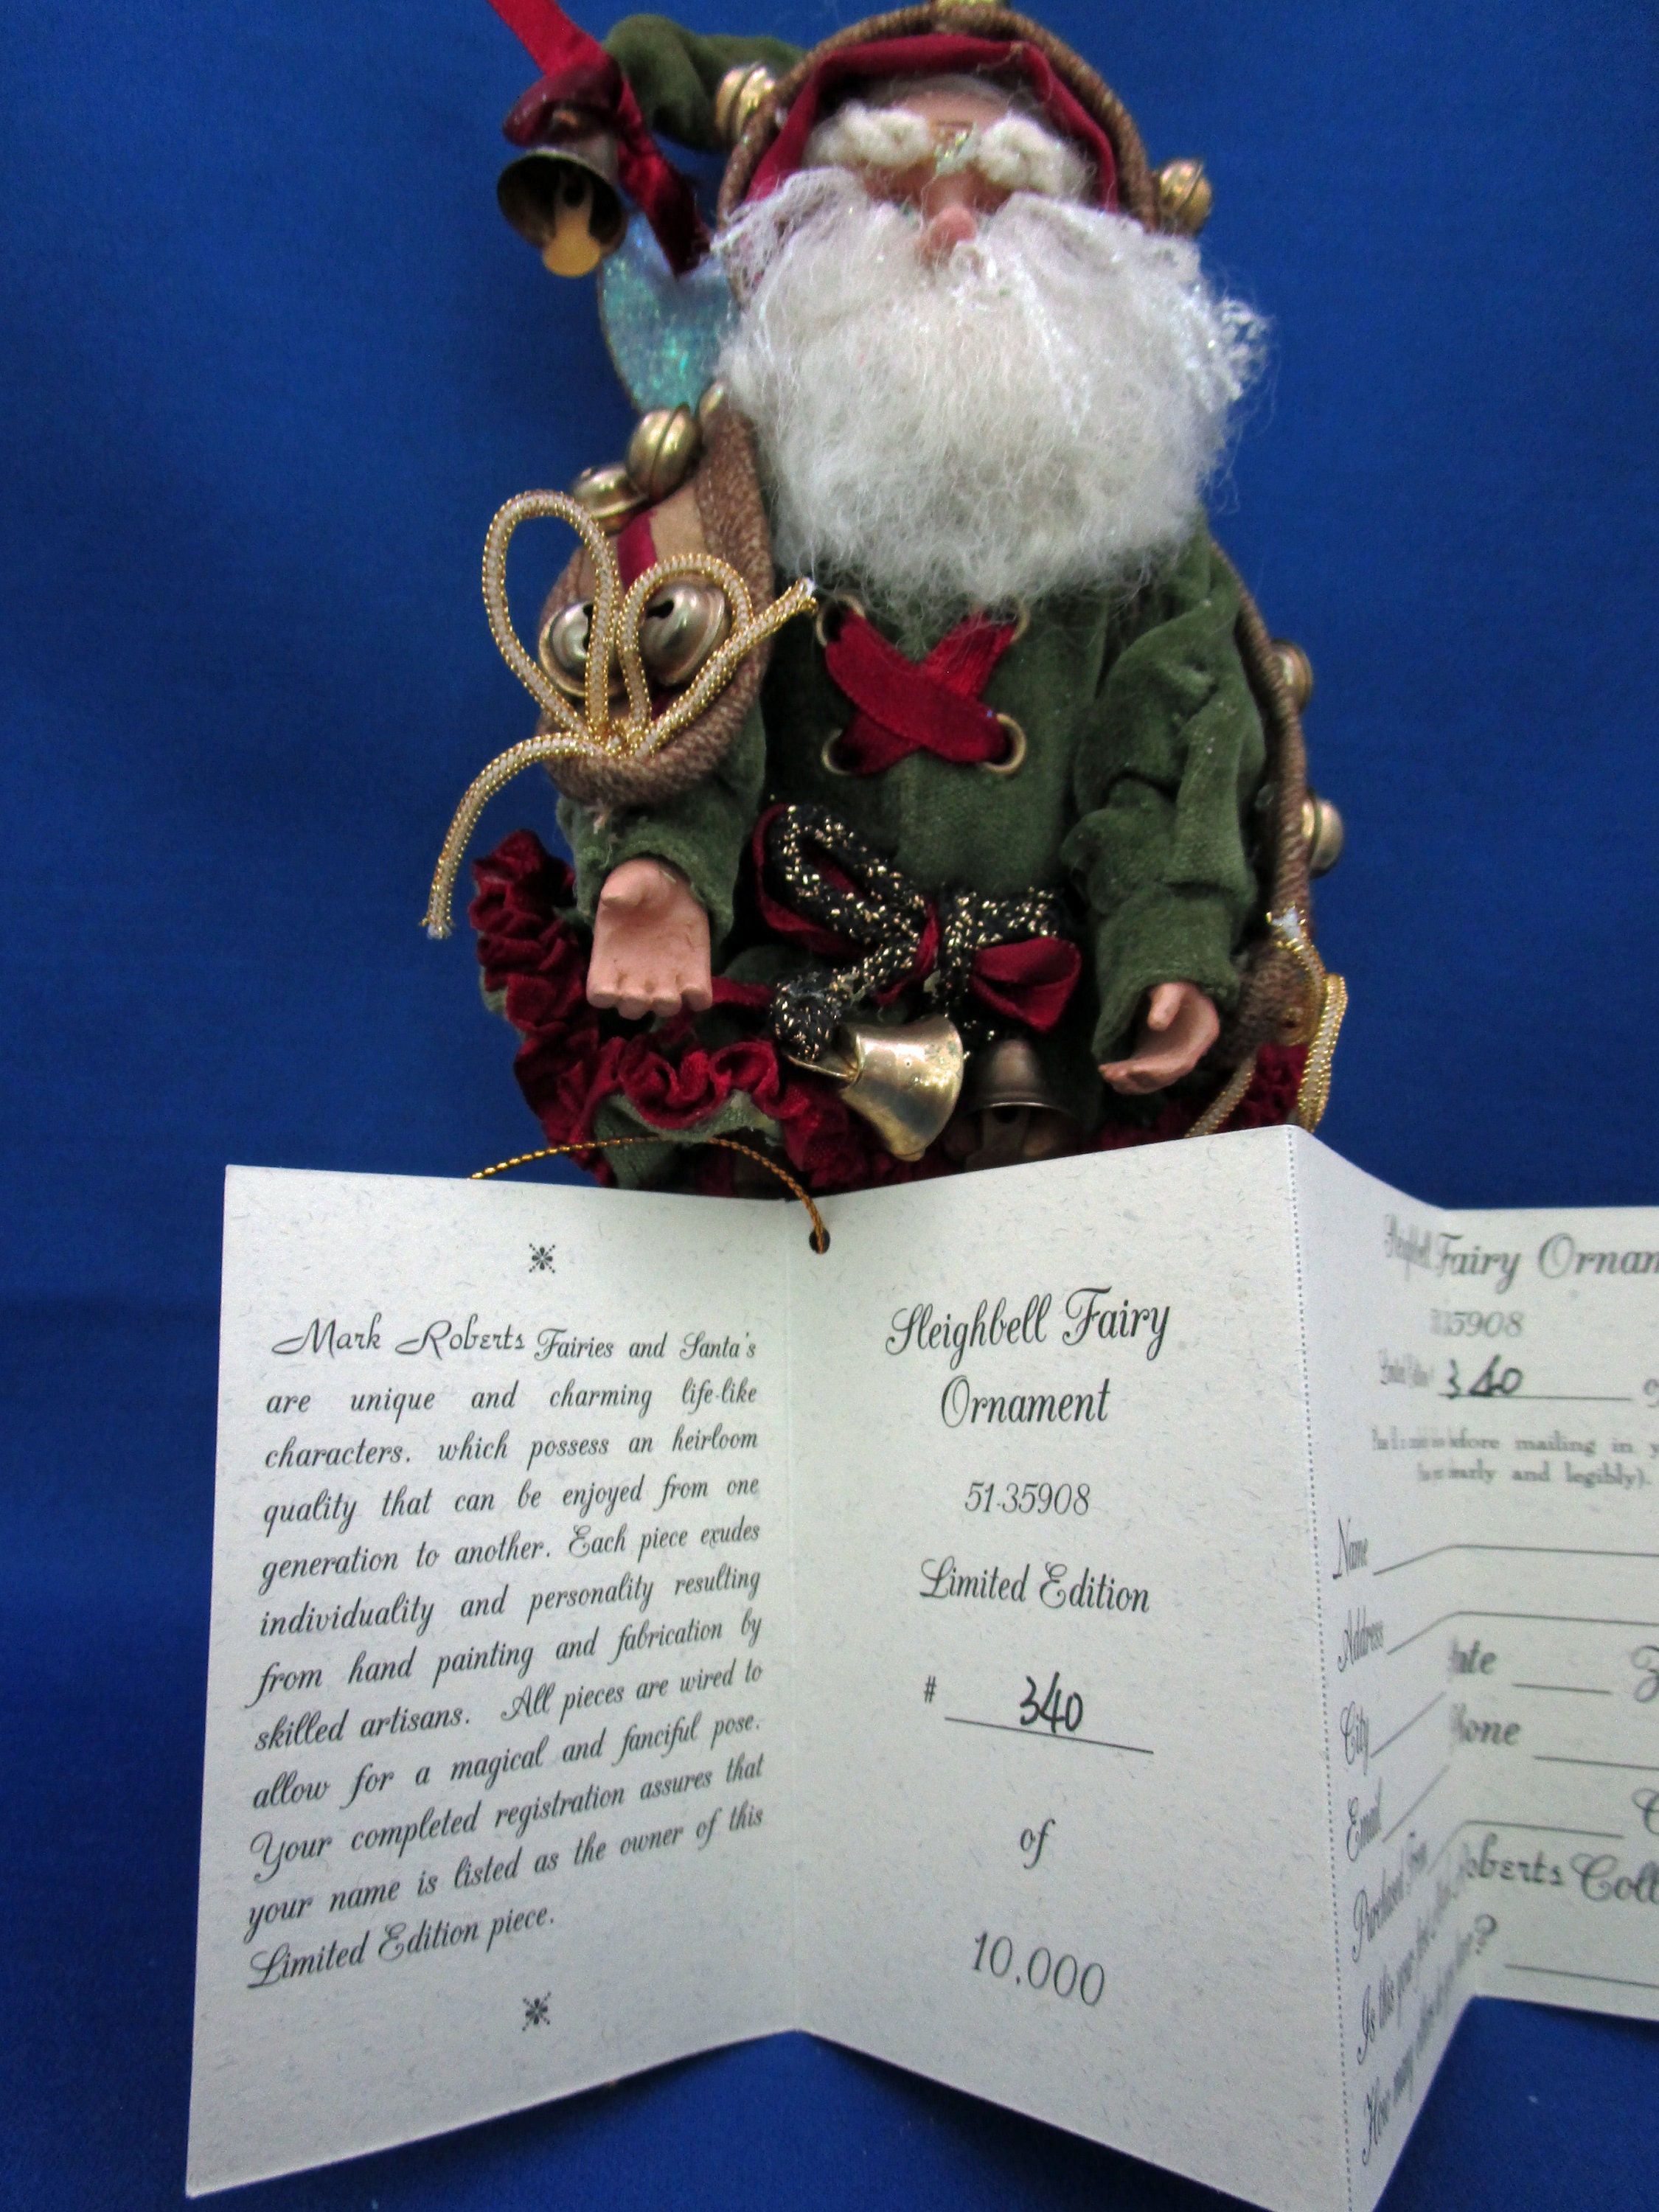 Mark Roberts Fairies and Santa's
are unique and charming life-like
characters, which possess an heirloom
quality that can be enjoyed from one
generation to another. Each piece exudes
individuality and personality resulting
from hand painting and fabrication by
skilled artisans. All pieces are wired to
allow for a magical and fanciful pose.
Your completed registration assures that
your name is listed as the owner of this
Limited Edition piece.
Sleighbell Fairy
Ornament
51-35908
Limited Edition
# 340
of
10,000
Fairy Ornam
35908
340
before mailing in y
and legibly).
Name
Address
City
Email
Purchased From
Is this your
How many
?